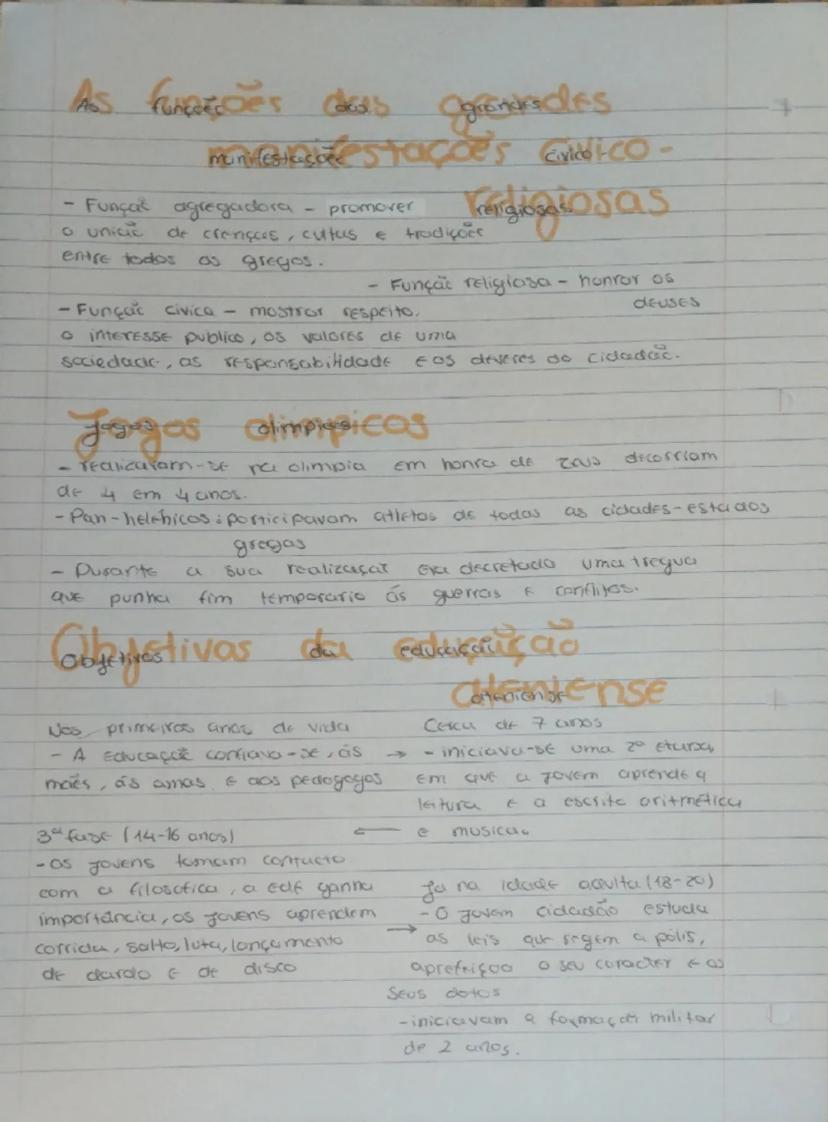 As funções das grandes
manifestações civico-
religiosas
- Função agregadora - promover
a união de crenças, cultus e tradições
entre todos os gregos.
- Função religiosa - honrar os
deuses
- Função civica - mostrar respeito.
o interesse publico, os valores de uma
sociedade, as responsabilidade e os deveres do cidadão.
Jogos olimpicos
- realizavam-se na olimpia em honra de zeus decorriam
de 4 em 4 anos.
- Pan-helénicos: participavam atletas de todas as cidades-estados
gregas
- Durante a sua realização era decretada uma tregua
que punha fim temporario ás guerras e conflitos.
Objetivos da educação
ateniense
Nos primeiros anos de vida
- A Educação confiava-se, ás
mães, ás amas e aos pedagogos
Cerca de 7 anos
→ - iniciava-se uma 2º etapa,
em que a jovem aprende a
leitura e a escrita aritmética
e musica.
←
3ª fase (14-16 anos)
- os jovens tomam contacto
com a filosofica, a edf ganha
importância, os jovens aprendem
corrida, salto, luta, lançamento
de dardo e de disco
→
Ja na idade adulta (18-20)
- O jovem cidadão estuda
as leis que regem a polis,
aprefeiçoo o seu caracter e os
seus dotos
- iniciavam a formação militar
de 2 anos.